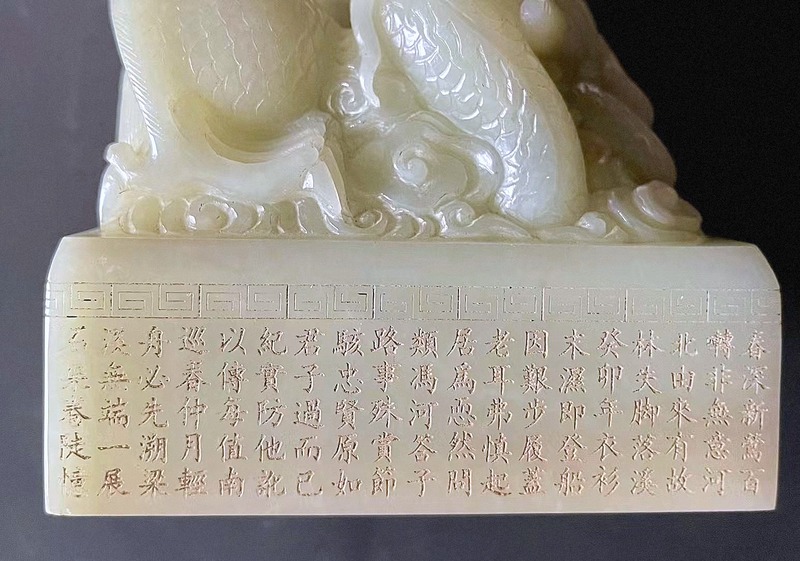 春深新鶯百
轉非無意河
北由來有故
林失脚落溪
癸卯年衣衫
未濕即登船
因艱步履蓋
老耳弗慎起
居爲然問
類馮河答子
路事殊賞節
駭忠賢原如
君子過而已
紀實防他訛
以傳每值南
巡春仲月輕
身必先溯梁
溪無端一展
卷陡憧